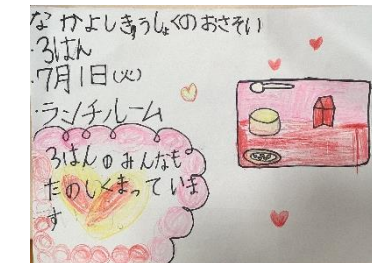 なかよしきゅうしょくのおさそい
・3はん
・7月1日(火)
・ランチルーム
3はんのみんなも
たのしくまっていま
す